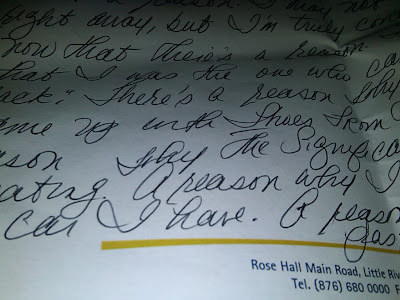 a reason. I may not
right away, but I'm truly con
now that there's a reason.
that I was the one who ca
ack." There's a reason why
me up with shoes from
ason why the significa
ating. A reason why I
car I have. A reason
gas
Rose Hall Main Road, Little Riv
Tel. (876) 680 0000 F